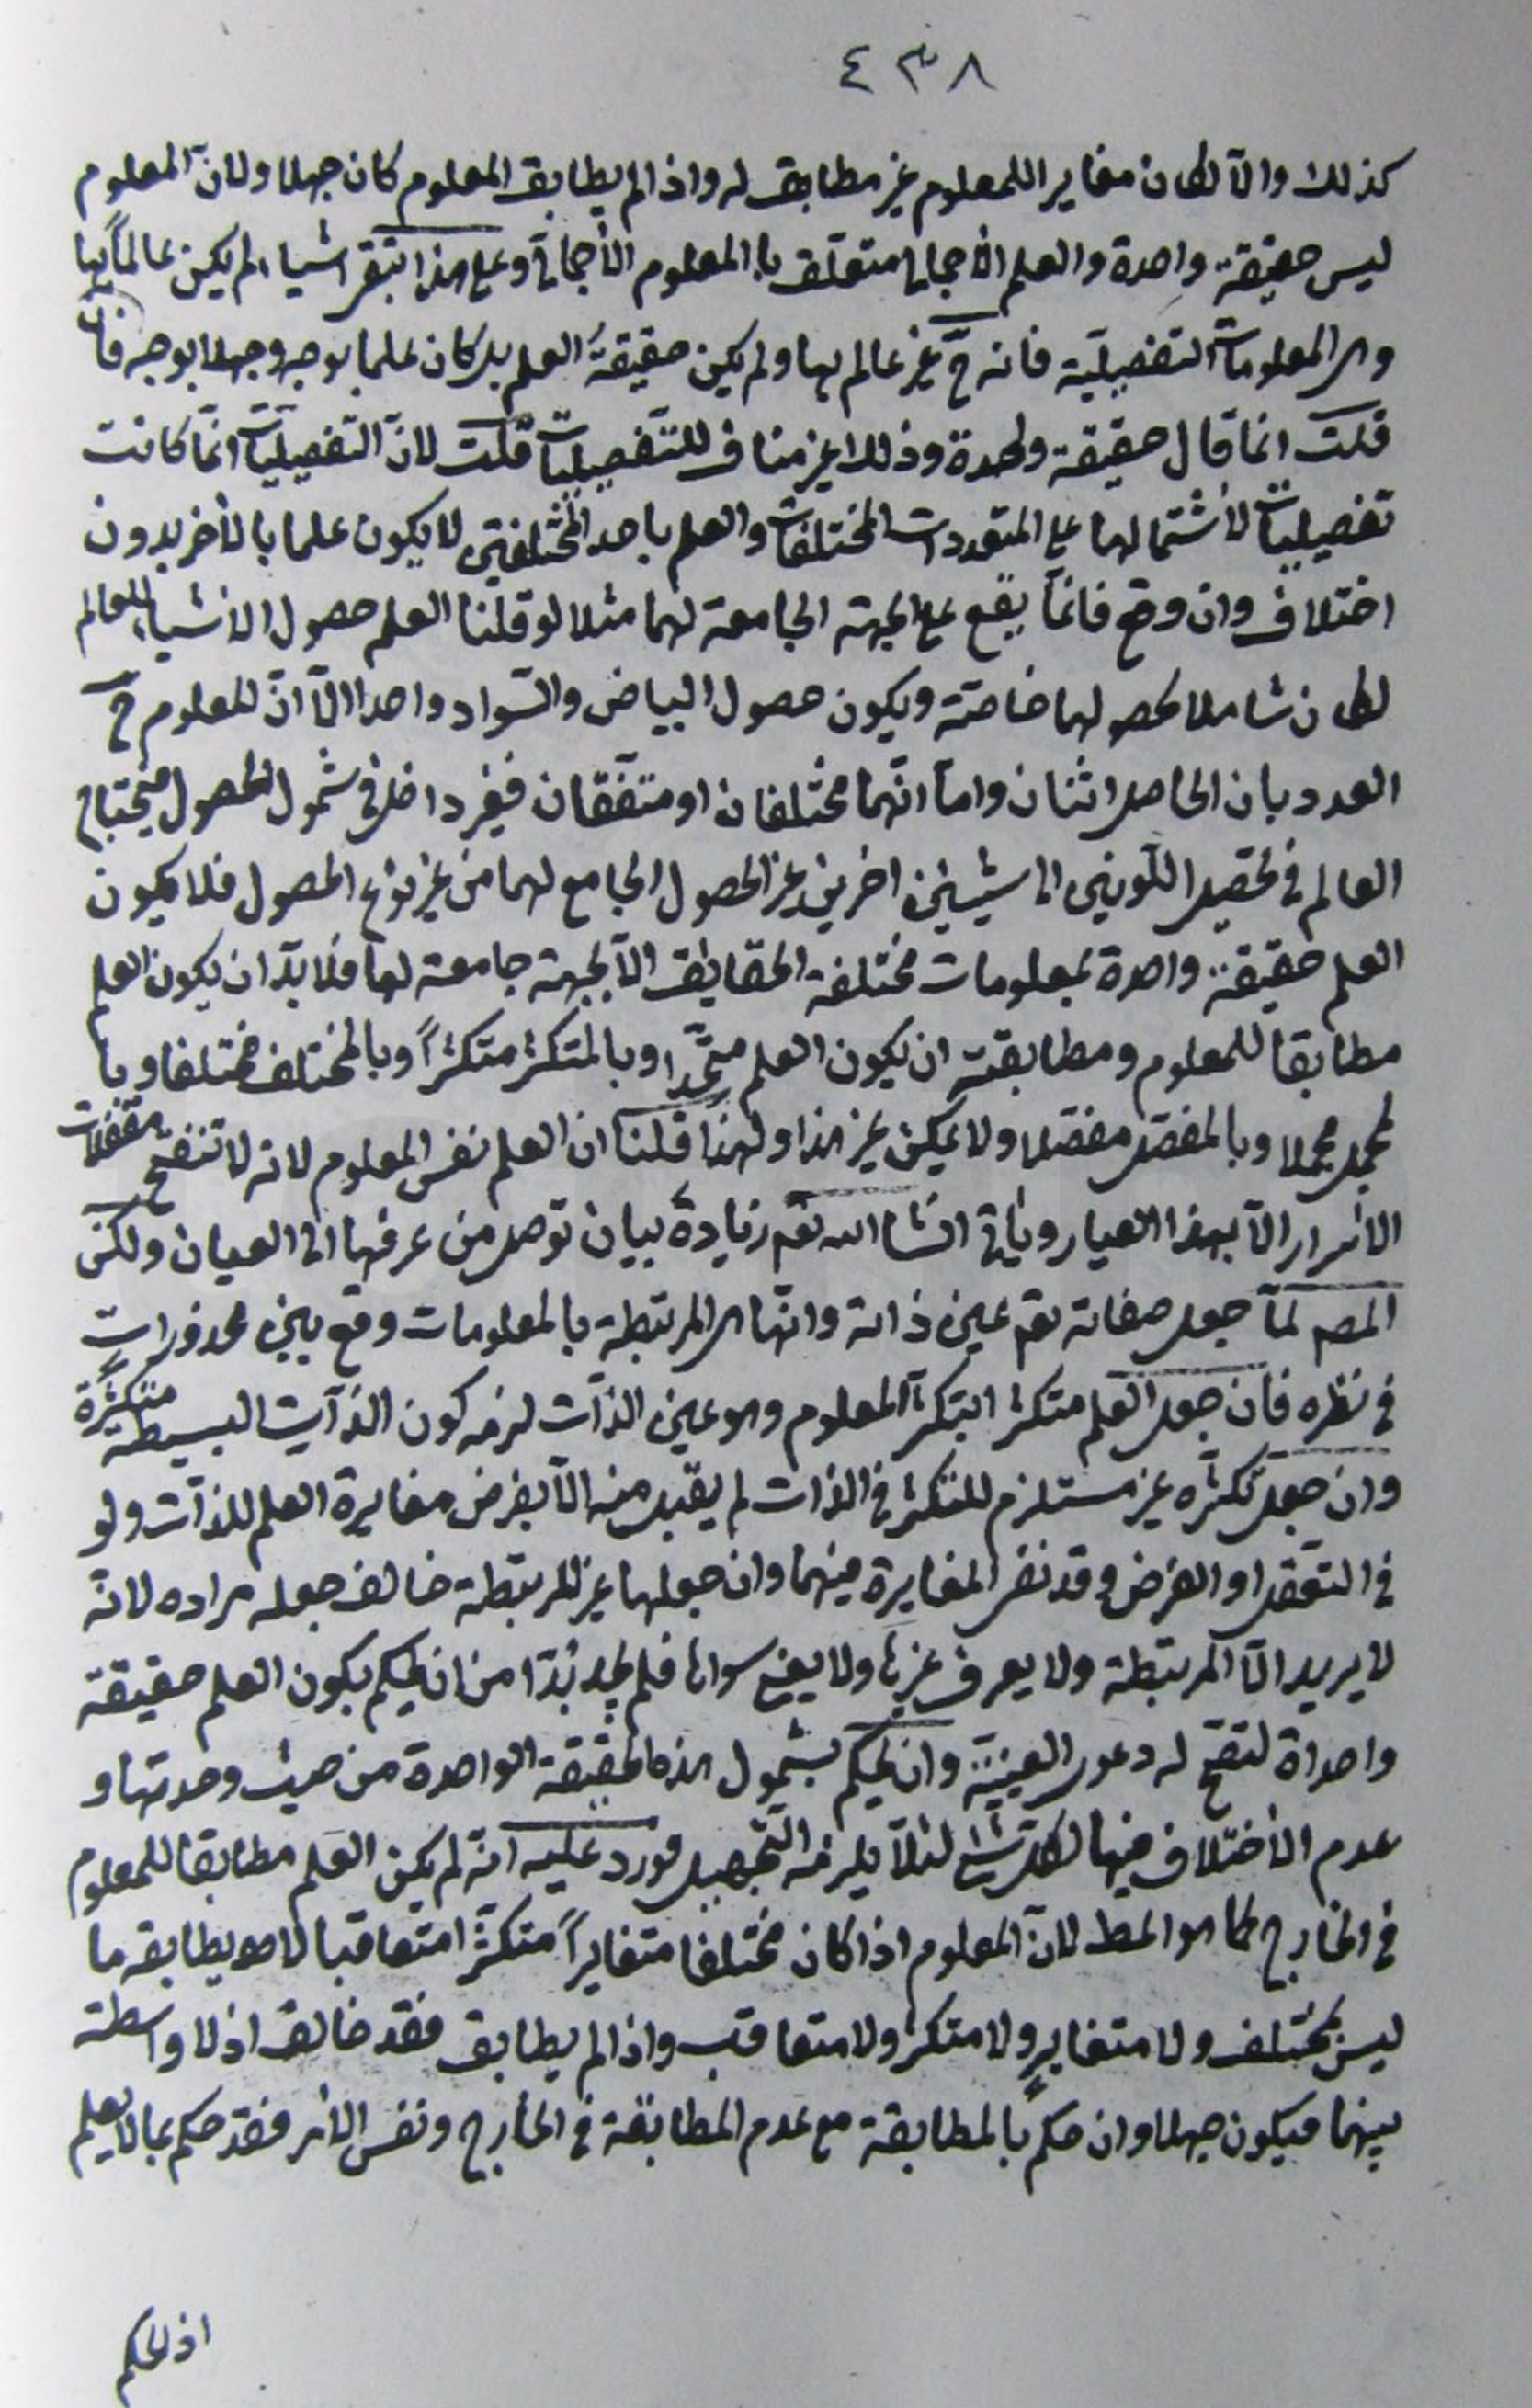 ٤٣٨
كذلك والّا لكان مغايرا للمعلوم غير مطابق له واذا لم يطابق المعلوم كان جهلا ولانّ المعلوم
ليس حقيقة واحدة والعلم الأجمالي متعلّق با المعلوم الأجمالي وعلى هذا تبقى اشياء لم يكن عالماً بها
وهى المعلومات التفصيليّة فانه ح غير عالم بها ولم يكن حقيقةُ العلم بل كان علما بوجه وجهلا بوجه فان
قلت انما قال حقيقة واحدة وذلك غير مناف للتفصيليات قلت لانّ التفصيليّات انّما كانت
تفصيليات لأشتمالها على المتعددات المختلفات والعلم باحد المختلفين لا يكون علما بالأخر بدون
اختلاف وان وقع فانّما يقع على الجهة الجامعة لهما مثلا لو قلنا العلم حصول الاشياء للعالم
لكان شاملا لحصولهما خاصّة ويكون حصول البياض والسّواد واحدا الّا انّ المعلوم ح
العدد بان الحاصل اثنان وامّا انّهما مختلفان او متفقان فغير داخل في شمول الحصول فيحتاج
العالم في تحصيل اللّونين الى شيئين اخرين غير الحصول الجامع لهما من غير نوع الحصول فلا يكون
العلم حقيقة واحدة بمعلومات مختلفة الحقايق الّا بجهة جامعة لها فلا بدّ ان يكون العلم
مطابقا للمعلوم ومطابقته ان يكون العلم متّحدا وبالمتكثّر متكثّراً وبالمختلف مختلفا وبا
لمجمل مجملا وبالمفصّل مفصّلا ولا يمكن غير هذا ولهذا قلنا ان العلم نفس المعلوم لانه لا تنفتح مقفلات
الاسرار الّا بهذا العيار وياتي انشاء الله تع زيادة بيان توصل من عرفها الى العيان ولكن
المص لمّا جعل صفاته تع عين ذاته وانّها هى المرتبطة بالمعلومات وقع بين محذورات
في نظره فان جعل العلم متكثرا بتكثّر المعلوم وهو عين الذّات لزمه كون الذّات البسيطة متكثّرة
وان جعل تكثّره غير مستلزم للتكثّر في الذات لم يقبل منه الّا بفرض مغايرة العلم للذّات ولو
في التعقل او الفرض وقد نفى المغايرة فيهما وان جعلها غير المرتبطة خالف جعله مراده لانّه
لا يريد الّا المرتبطة ولا يعرف غيرها ولا يعنى سواها فلم يجد بُدّا من ان يحكم بكون العلم حقيقة
واحداة لتصحّ له دعوى العينيّة وان يحكم بشمول هذه الحقيقة الواحدة من حيث وحدتها و
عدم الأختلاف فيها لكلّ شئ لئلّا يلزمه التّجهيل فورد عليه انّه لم يكن العلم مطابقا للمعلوم
في الخارج كما هو المط لانّ المعلوم اذا كان مختلفا متغايراً متكثّراً متعاقبا لا يطابقه ما
ليس بمختلف ولا متغاير ولا متكثّر ولا متعاقب واذا لم يطابق فقد خالف اذ لا واسطة
بينهما فيكون جهلا وان حكم بالمطابقة مع عدم المطابقة في الخارج ونفس الأمر فقد حكم بما لا يعلم
اذ الحكم